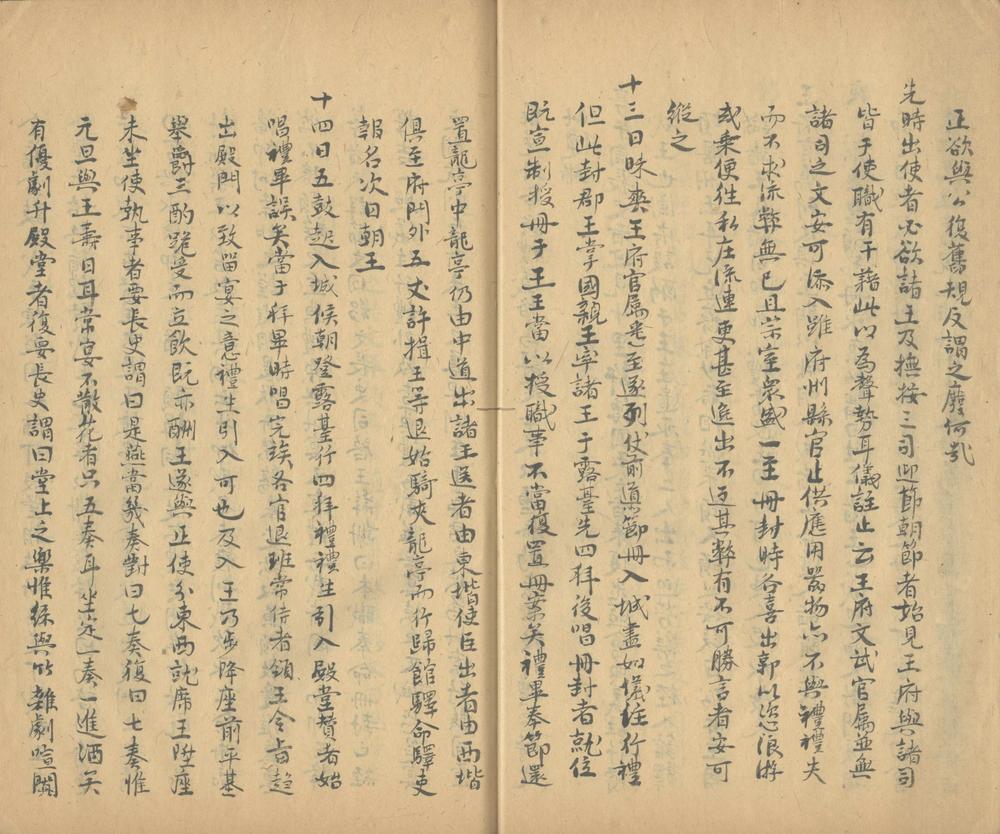 正欲與公復舊規反謂之廢何哉
先時出使者必欲諸王及撫按三司迎節朝節者始見王府與諸司
皆于使職有干藉此以為聲勢耳儀註止云王府文武官屬並無
諸司之文安可添入雖府州縣官止供應用器物亦不與禮禮夫
而不求流弊無已且宗室衆盛一王冊封時各喜出郭以恣浪游
或乘便徃私庄流連更甚至進出不返其弊有不可勝言者安可
縱之
十三日昧爽王府官属悉至遂列仗前導節冊入城盡如儀徃行禮
但此封郡王掌國親王率諸王于露臺先四拜後唱冊封者就位
既宣制授冊于王王當以授職事不當復置冊案矣禮畢奉節還
置龍亭中龍亭仍由中道出諸王送者由東堦使臣出者由西堦
俱至府門外五丈許揖王等退始騎夾龍亭而行歸館驛命驛吏
報名次日朝王
十四日五鼓起入城候朝登露臺行四拜禮禮生引入殿堂贊者始
唱禮畢誤矣當于拜畢時唱完族各官退班常侍者領王令旨趨
出殿門以致留宴之意禮生引入可也及入王乃步降座前平基
舉爵三酌跪受而立飲既亦酬王遂與正使分東西就席王陞座
未坐使執事者要長史謂曰是燕當幾奏對曰七奏復曰七奏惟
元旦與王壽日耳常宴不散花者只五奏耳坐定一奏一進酒矣
有優劇升殿堂者復要長史謂曰堂上之樂惟絲與竹雜劇喧闐